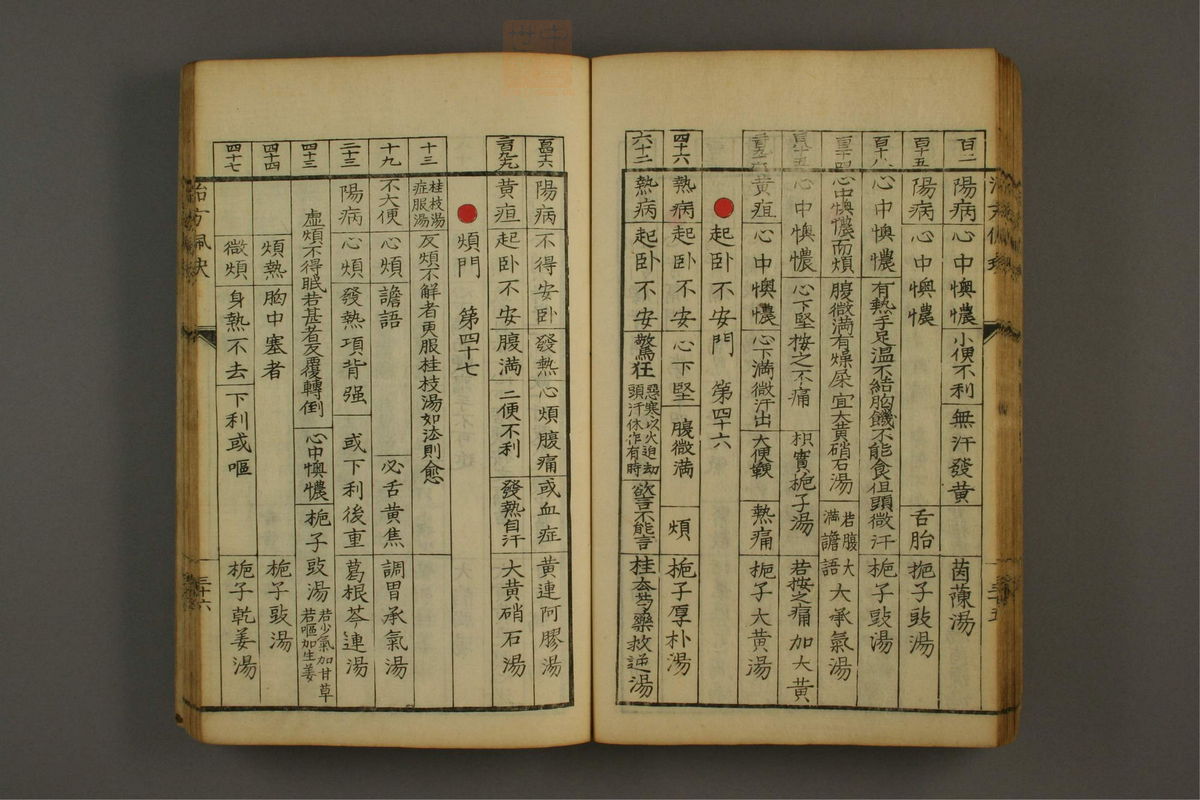 百二 陽病 心中懊憹 小便不利 無汗發黃 茵蔯湯
百十五 陽病 心中懊憹 舌胎 梔子豉湯
百十八 心中懊憹 有熱手足温不結胸饑不能食但頭微汗 梔子豉湯
心中懊憹而煩 腹微滿有燥屎 宜大黃硝石湯 若腹大滿譫語 大承氣湯
心中懊憹 心下堅按之不痛 枳實梔子湯 若按之痛加大黃
黃疸 心中懊憹 心下滿微汗出 大便鞕 熱痛 梔子大黃湯
起卧不安門 第四十六
四十六 熱病 起卧不安 心下堅 腹微滿 煩 梔子厚朴湯
六十二 熱病 起卧不安 驚狂 惡寒以火迫劫頭汗休作有時 欲言不能言 桂去芍藥救逆湯
陽病 不得安卧 發熱心煩腹痛或血症 黃連阿膠湯
黃疸 起卧不安 腹滿 二便不利 發熱自汗 大黃硝石湯
煩門 第四十七
十三 桂枝湯症服湯 反煩不解者更服桂枝湯如法則愈
十九 不大便 心煩 譫語 必舌黃焦 調胃承氣湯
二十三 陽病 心煩 發熱項背强 或下利後重 葛根芩連湯
四十三 虛煩不得眠若甚者反覆轉倒 心中懊憹 梔子豉湯 若少氣加甘草若嘔加生姜
四十四 煩熱 胸中塞者 梔子豉湯
四十七 微煩 身熱不去 下利或嘔 梔子乾姜湯
三十六